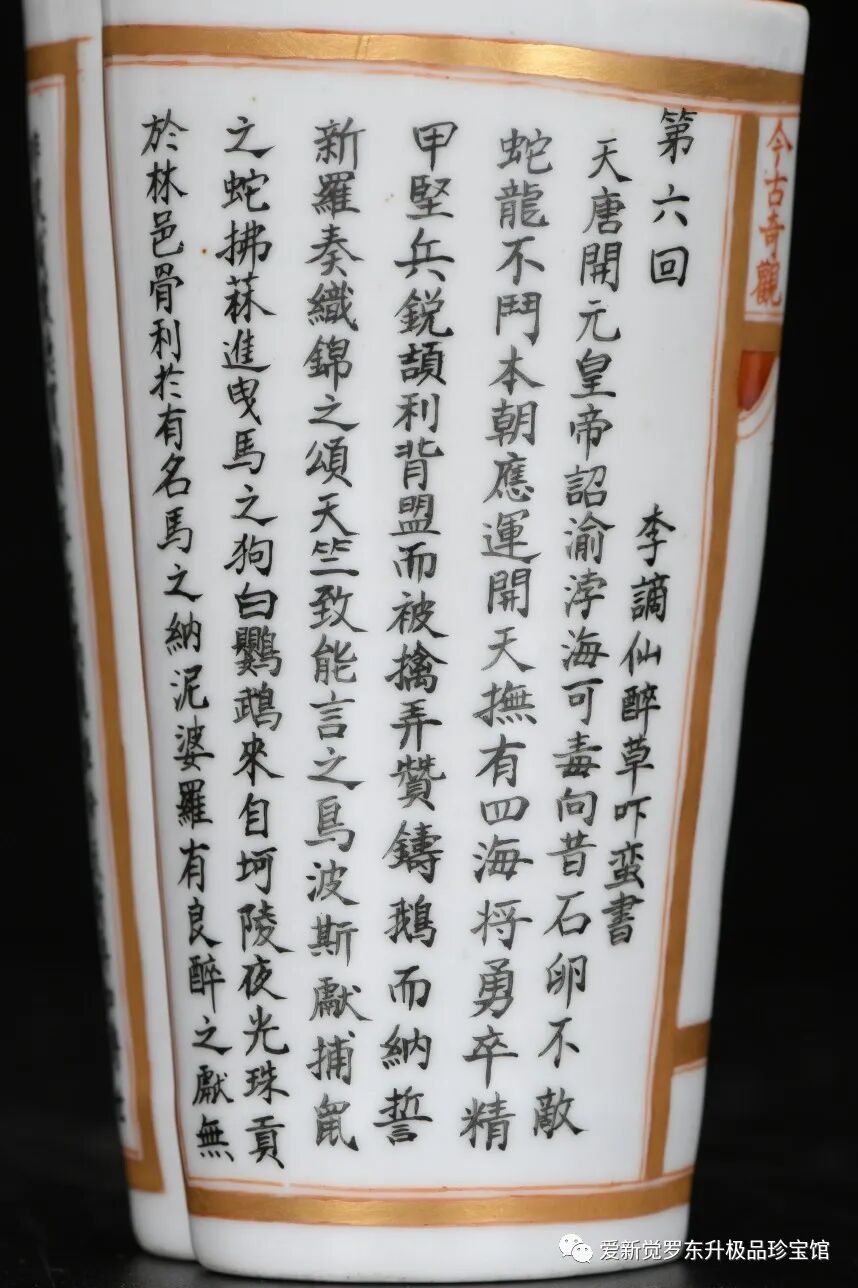 今古奇觀
第六回
李謫仙醉草吓蛮書
天唐開元皇帝詔渝渤海可毒向昔石卵不敵
蛇龍不鬥本朝應運開天撫有四海将勇卒精
甲堅兵銳頡利背盟而被擒弄贊鑄鵝而納誓
新羅奏織錦之頌天竺致能言之鳥波斯獻捕鼠
之蛇拂菻進曳馬之狗白鸚鵡來自坷陵夜光珠貢
於林邑骨利於有名馬之納泥婆羅有良醉之獻無
爱新觉罗东升极品珍宝馆